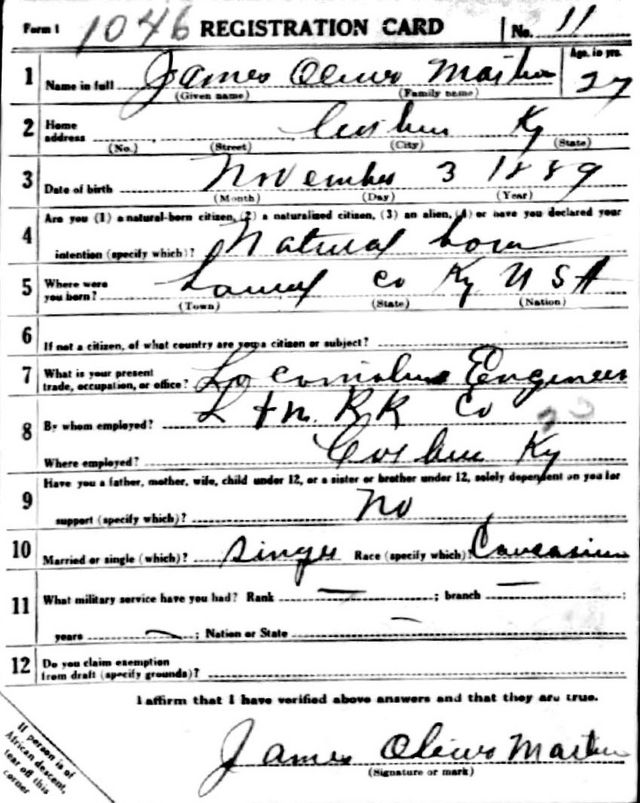 Form 1 1046 REGISTRATION CARD No. 11
1 Name in full James Oliver Martin Age, in yrs. 27
(Given name) (Family name)
2 Home address Corbin Ky
(No.) (Street) (City) (State)
3 Date of birth November 3 1889
(Month) (Day) (Year)
4 Are you (1) a natural-born citizen, (2) a naturalized citizen, (3) an alien, (4) or have you declared your
intention (specify which)? Natural born
5 Where were you born? Laurel Co Ky U S A
(Town) (State) (Nation)
6 If not a citizen, of what country are you a citizen or subject?
7 What is your present trade, occupation, or office? Locomotive Engineer
8 By whom employed? L + N. R R Co
Where employed? Corbin Ky
9 Have you a father, mother, wife, child under 12, or a sister or brother under 12, solely dependent on you for
support (specify which)? No
10 Married or single (which)? Single Race (specify which)? Caucasian
11 What military service have you had? Rank — ; branch — ;
years — ; Nation or State —
12 Do you claim exemption from draft (specify grounds)?
I affirm that I have verified above answers and that they are true.
James Oliver Martin
(Signature or mark)
If person is of
African descent,
tear off this
corner